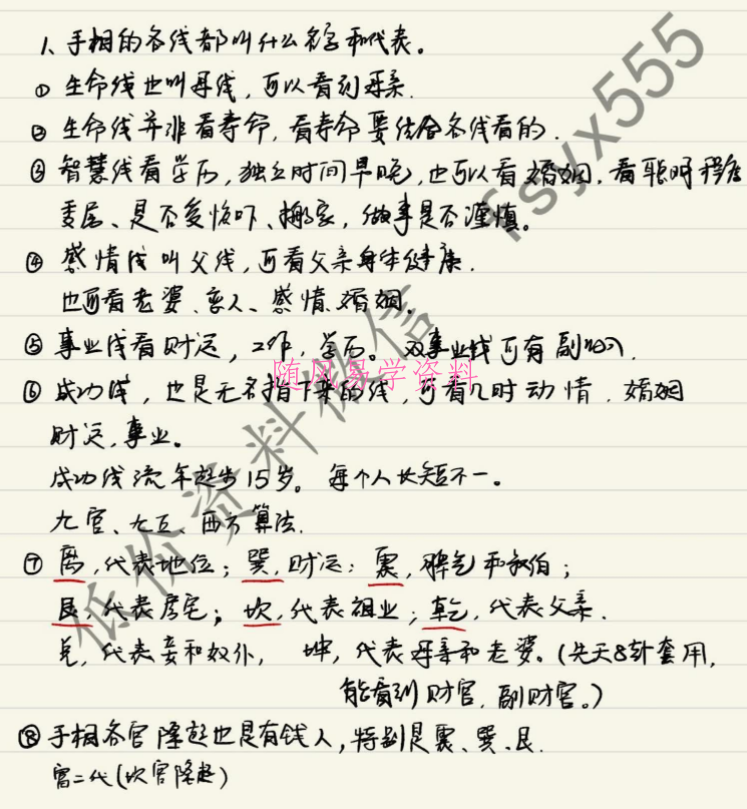 1、手相的各线都叫什么名字和代表。
① 生命线也叫母线，可以看到母亲.
② 生命线并非看寿命，看寿命要结合各线看的.
③ 智慧线看学历，独立时间早晚，也可以看婚姻.看聪明程度
是否受惊吓、搬家，做事是否谨慎。
④ 感情线叫父线，可看父亲身体健康.
也可看老婆、恋人、感情、婚姻。
⑤ 事业线看财运，工作，学历。双事业线可有副业.
⑥ 成功线，也是无名指下来的线，可看几时动情.婚姻
财运,事业。
成功线流年起步15岁。每个人长短不一。
九宫、七五、西方算法.
⑦ 离,代表地位；巽,财运；震,脾气和叔伯；
艮,代表房宅；坎,代表祖业；乾,代表父亲.
兑,代表妾和奴仆,坤,代表母亲和老婆。(先天8卦套用,
能看到财官,副财官。)
⑧ 手相各宫隆起也是有钱人,特别是震、巽、艮.
富二代(坎宫隆起)
随风易学资料
低价资料微信fsyx555